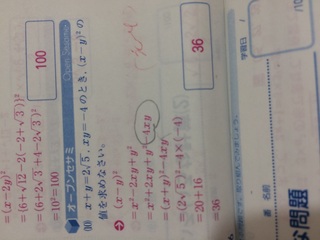 =(x-2y)²
={6+√12-2(-2+√3)}²
=(6+2√3+4-2√3)²
=10²=100
100
オープンセサミ
Open Sesame
x+y=2√5, xy=-4のとき, (x-y)²の
値を求めなさい。
(x-y)²
=x²-2xy+y²
=x²+2xy+y²-4xy
=(x+y)²-4xy
=(2√5)²-4×(-4)
=20+16
=36
36
学習日
/
名前
問題
/10